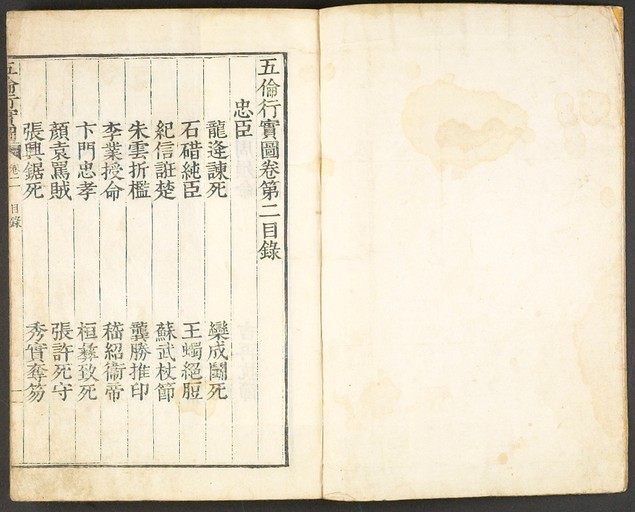 五倫行實圖卷第二目錄
忠臣
龍逄諫死 欒成鬪死
石碏純臣 王蠋絕脰
紀信誑楚 蘇武杖節
朱雲折檻 龔勝推印
李業授命 嵇紹衞帝
卞門忠孝 桓彝致死
顏袁罵賊 張許死守
張興鋸死 秀實奪笏
五倫行實圖 卷二 目錄 一